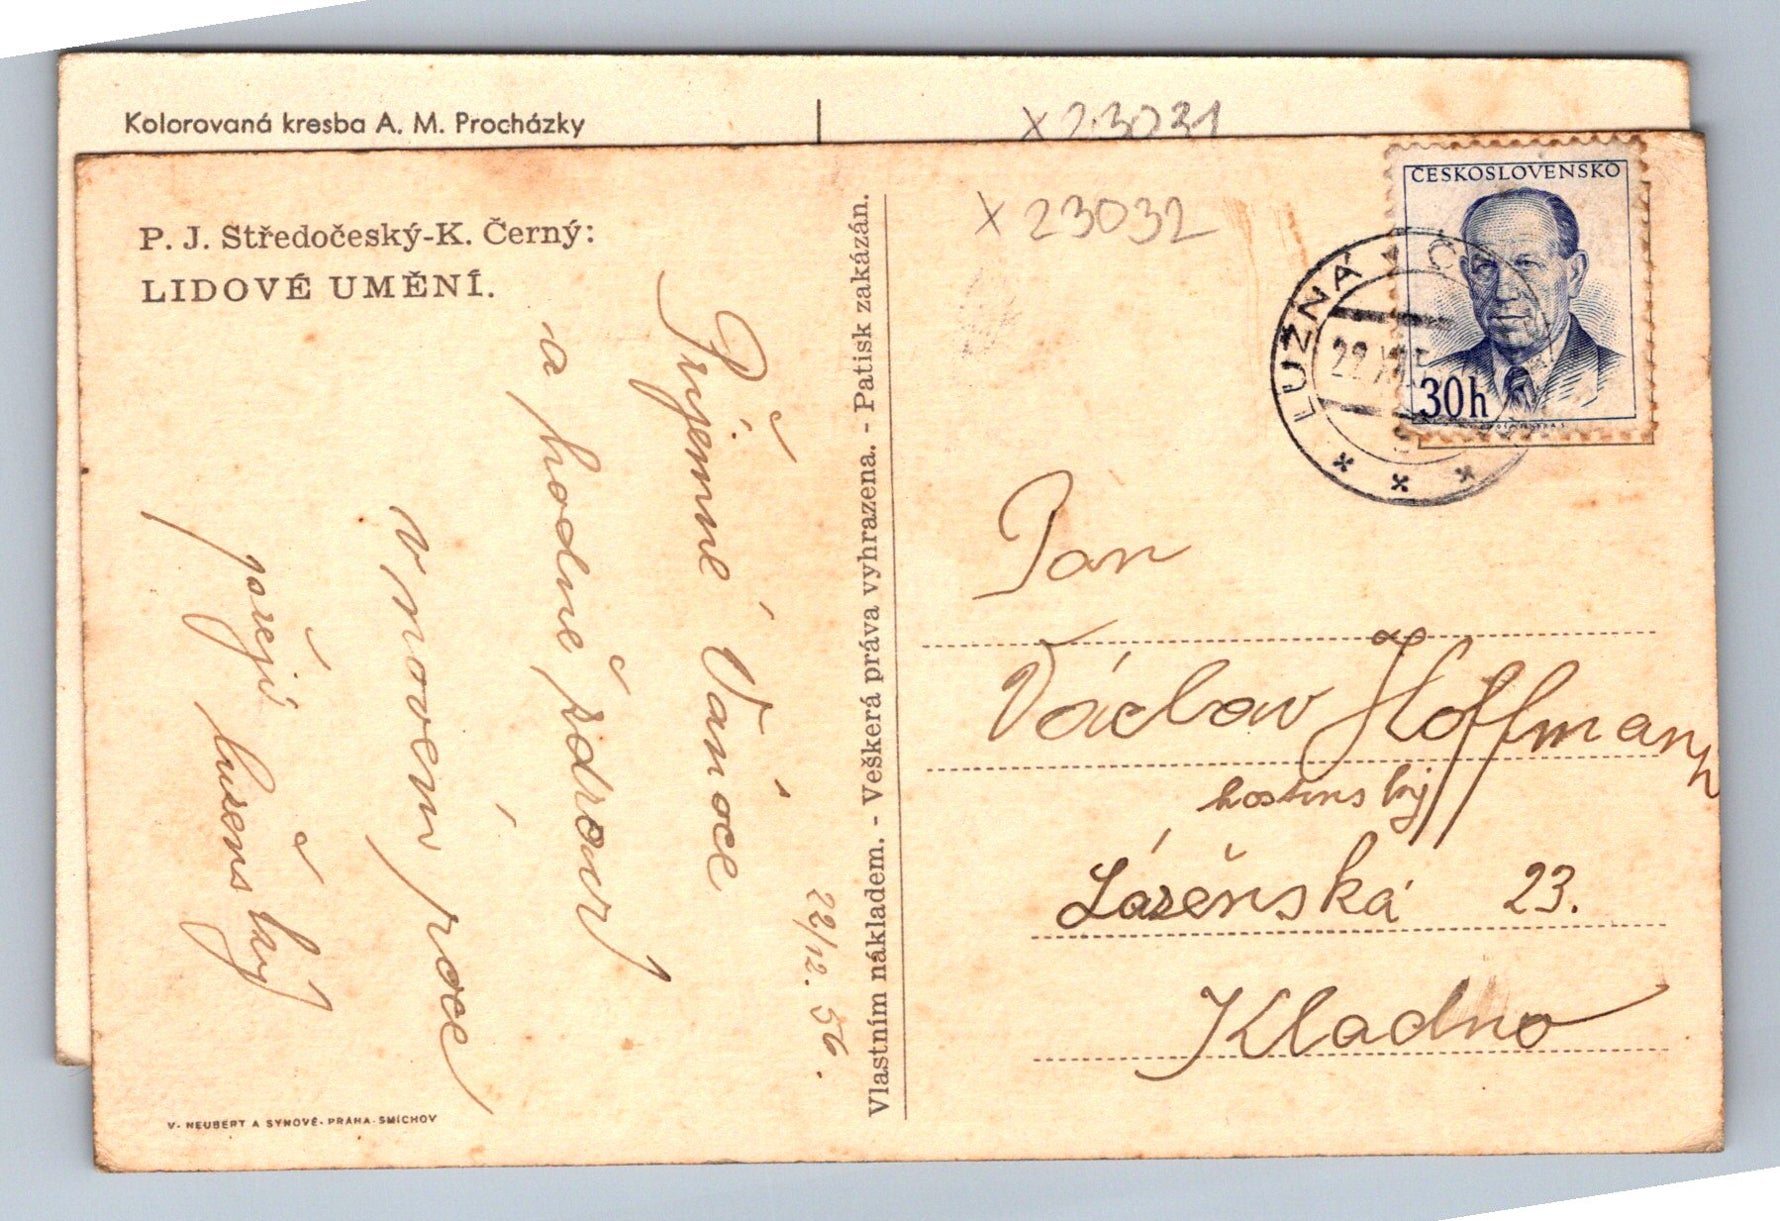 Kolorovaná kresba A. M. Procházky
X 23031
X 23032
P. J. Středočeský-K. Černý:
LIDOVÉ UMĚNÍ.
ČESKOSLOVENSKO
30h
LUŽNÁ
22
Příjemné Vánoce
a hodně zdraví
v novém roce
přejí
22/12. 56.
Vlastním nákladem. - Veškerá práva vyhrazena. - Patisk zakázán.
Pan
Václav Hoffmann
hostinský
Lázeňská 23.
Kladno
V. NEUBERT A SYNOVÉ - PRAHA - SMÍCHOV